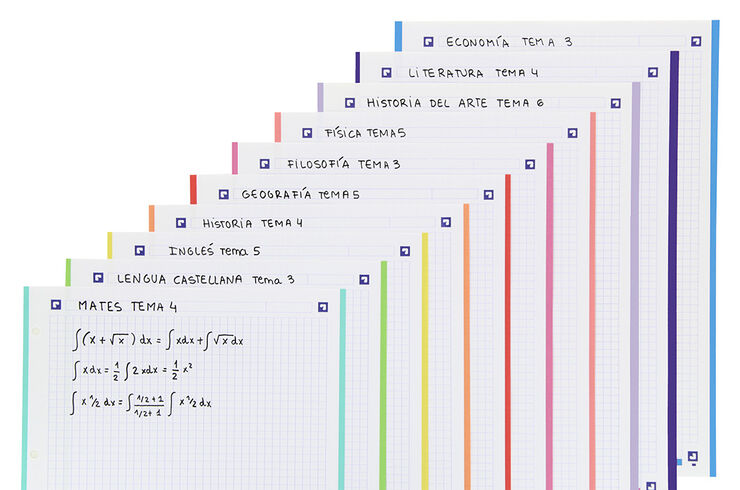 ECONOMÍA TEMA 3
LITERATURA TEMA 4
HISTORIA DEL ARTE TEMA 6
FÍSICA TEMA 5
FILOSOFÍA TEMA 3
GEOGRAFÍA TEMA 5
HISTORIA TEMA 4
INGLÉS Tema 5
LENGUA CASTELLANA Tema 3
MATES TEMA 4
∫(x + √x) dx = ∫xdx + ∫√x dx
∫xdx = 1/2 ∫2xdx = 1/2 x²
∫x 1/2 dx = ∫ (1/2+1)/(1/2+1) ∫ x 1/2 dx